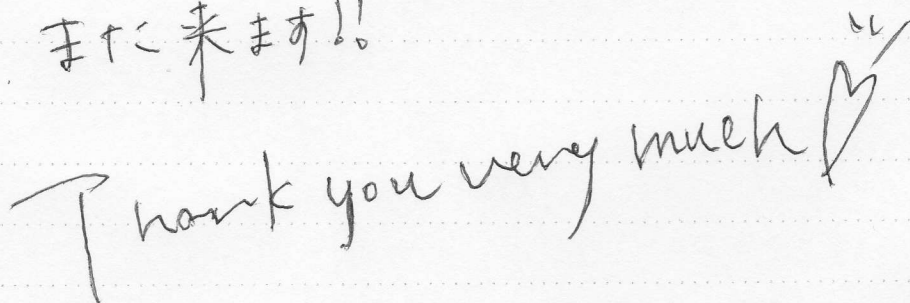 また来ます!!
Thank you very much♡